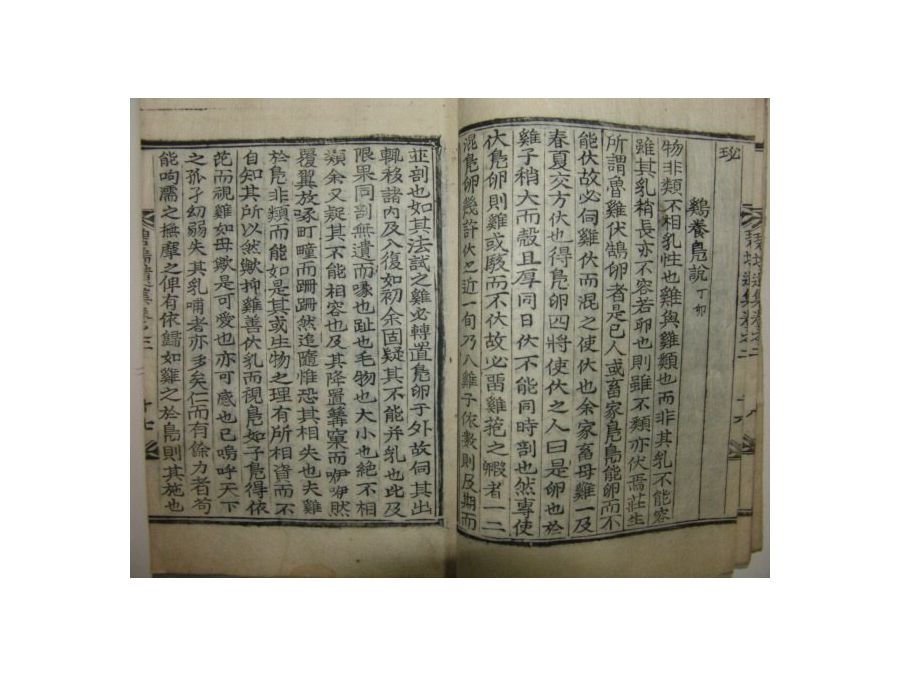 鷄養鳧說 丁卯
物非類不相乳性也雞與雞類也而非其乳不能容
雖其乳稍長亦不容若卵也則雖不類亦伏焉莊生
所謂魯雞伏鵠卵者是已人或畜家鳧鳧能卵而不
能伏故必伺雞伏而混之使伏也余家畜母雞一及
春夏交方伏也得鳧卵四將使伏之人曰是卵也於
雞子稍大而殼且厚同日伏不能同時剖也然專使
伏鳧卵則雞或駭而不伏故必留雞菢之毈者一二
混鳧卵幾許伏之近一旬乃入雞子依數則及期而
並剖也如其法試之雞必轉置鳧卵于外故伺其出
輒移諸內及入復如初余固疑其不能并乳也比及
限果同剖無遺而喙也趾也毛物也大小也絶不相
類余又疑其不能相容也及其降置篝窠而咿咿然
覆翼放啄町疃而跚跚然追隨惟恐其相失也夫雞
於鳧非類而能如是其或生物之理有所相資而不
自知其所以然歟抑雞善伏乳而視鳧如子鳧得依
菢而視雞如母歟是可愛也亦可感也已嗚呼天下
之孤孑幼弱失其乳哺者亦多矣仁而有餘力者苟
能呴濡之撫摩之俾有依歸如雞之於鳧則其施也